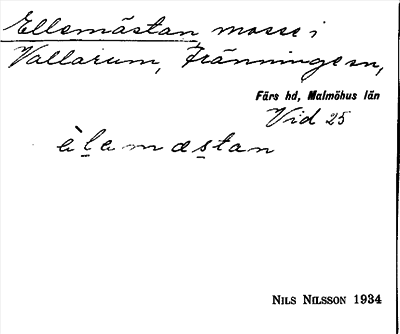 Ellemästan mosse i
Vallarum, Fränninge sn,
Färs hd, Malmöhus län
Vid 25
èl̲emæs̲tan
NILS NILSSON 1934